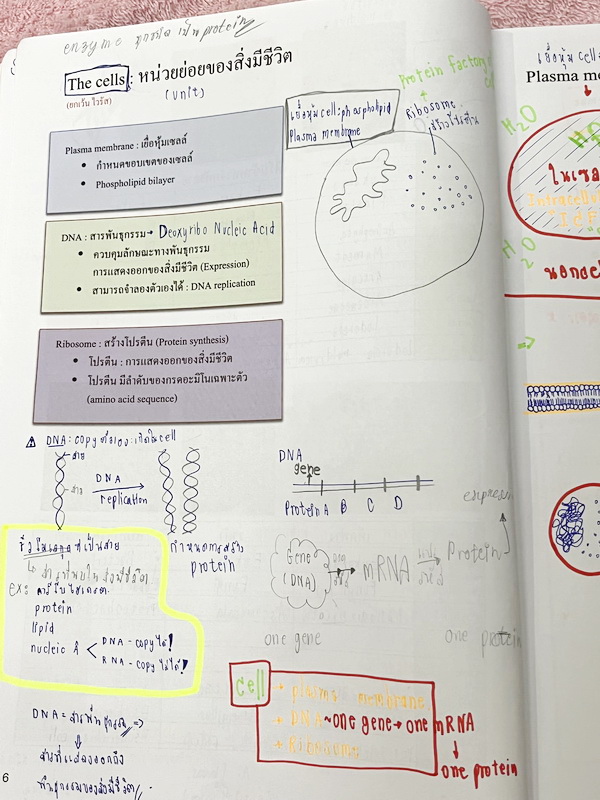 enzyme ทุกชนิด เป็น protein
The cells : หน่วยย่อยของสิ่งมีชีวิต
(ยกเว้น ไวรัส)
(unit)
Protein factory
Ribosome :
สร้างโปรตีน
เยื่อหุ้ม cell : phospholipid
Plasma membrane
Plasma membrane : เยื่อหุ้มเซลล์
• กำหนดขอบเขตของเซลล์
• Phospholipid bilayer
DNA : สารพันธุกรรม → Deoxyribo Nucleic Acid
• ควบคุมลักษณะทางพันธุกรรม
การแสดงออกของสิ่งมีชีวิต (Expression)
• สามารถจำลองตัวเองได้ : DNA replication
Ribosome : สร้างโปรตีน (Protein synthesis)
• โปรตีน : การแสดงออกของสิ่งมีชีวิต
• โปรตีน มีลำดับของกรดอะมิโนเฉพาะตัว
(amino acid sequence)
DNA : copy ตัวเอง : เกิดใน cell
สาย
สาย
DNA
replication
DNA
gene
Protein A B C D
ชีวโมเลกุล ที่เป็นสาย
กำหนดการสร้าง
protein
ex: คาร์โบไฮเดรต
protein
lipid
nucleic A
DNA - copy ได้!
RNA - copy ไม่ได้!
Gene
(DNA)
mRNA
Protein
one gene
one protein
cell
+ plasma membrane
+ DNA ~ one gene → one mRNA
+ Ribosome
one protein
DNA = สารพันธุกรรม =>
6
เยื่อหุ้ม cell
Plasma me
H₂O
H₂O
H₂O
ในเซล
Intracellul
"IcF
นอกเซ